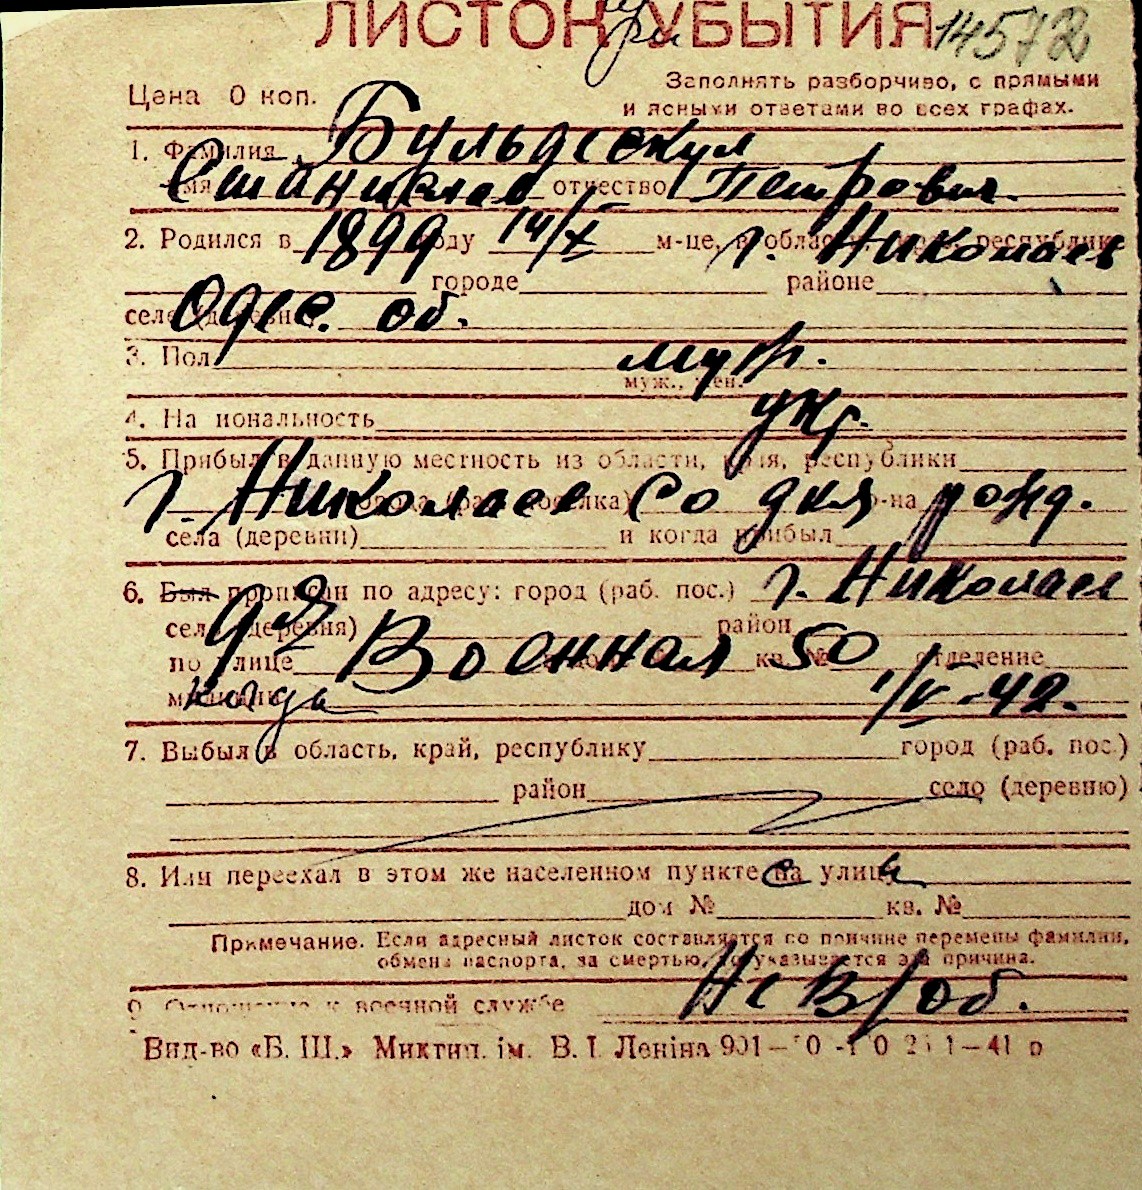 ЛИСТОК УБЫТИЯ 14572
при
Цена 0 коп.
Заполнять разборчиво, с прямыми
и ясными ответами во всех графах.
1. Фамилия Бульдескул
Имя Станислав отчество Петрович
2. Родился в 1899 году 14/X м-це, в области, крае, республике г. Николаев
городе районе
селе (деревне) Одес. об.
3. Пол муж.
муж., жен.
4. Национальность укр.
5. Прибыл в данную местность из области, края, республики
г. Николаев со дня рожд. р-на
села (деревни) и когда прибыл
6. Был прописан по адресу: город (раб. пос.) г. Николаев
село (деревня) район
по улице Военная 50 кв. № отделение
милиции когда 1/V-42.
7. Выбыл в область, край, республику город (раб. пос.)
район село (деревню)
8. Или переехал в этом же населенном пункте на улицу
дом № кв. №
Примечание. Если адресный листок составляется по причине перемены фамилии,
обмена паспорта, за смертью, то указывается эта причина.
9. Отношение к военной службе Не в/об.
Вид-во «Б. Ш.» Миктип. ім. В. І. Леніна